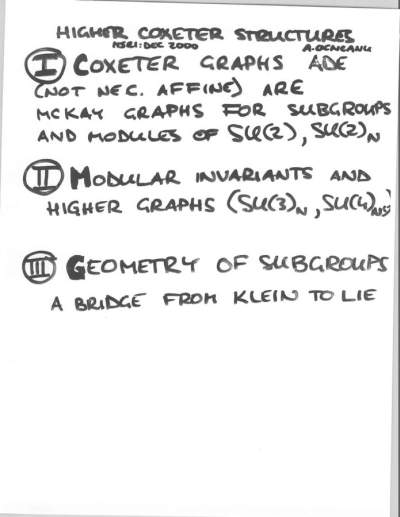 HIGHER COXETER STRUCTURES
MSRI: DEC 2000 A. OCNEANU
I COXETER GRAPHS ADE
(NOT NEC. AFFINE) ARE
MCKAY GRAPHS FOR SUBGROUPS
AND MODULES OF SU(2), SU(2)N
II MODULAR INVARIANTS AND
HIGHER GRAPHS (SU(3)N, SU(4)N)
III GEOMETRY OF SUBGROUPS
A BRIDGE FROM KLEIN TO LIE